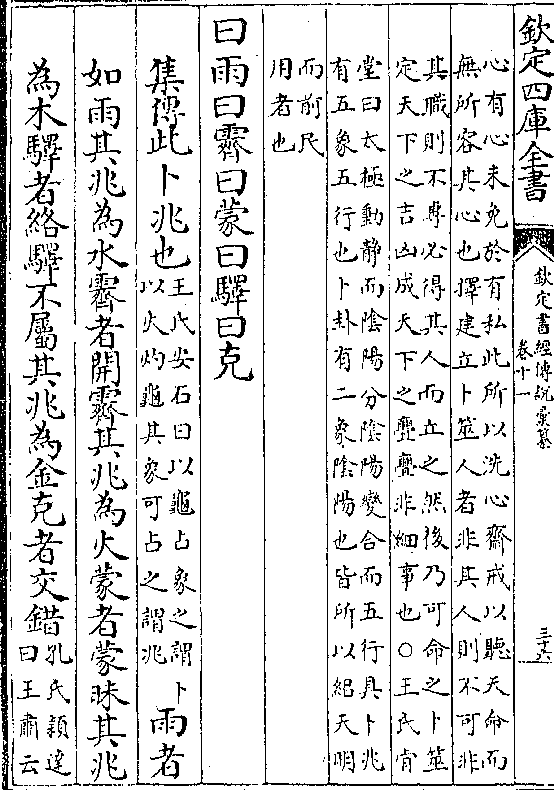 欽定四庫全書
欽定書經傳說彙纂
卷十一
三十六
心有心未免於有私此所以洗心齋戒以聽天命而
無所容其心也擇建立卜筮人者非其人則不可非
其職則不專必得其人而立之然後乃可命之卜筮
定天下之吉凶成天下之亹亹非細事也○王氏肯
堂曰太極動靜而陰陽分陰陽變合而五行具卜兆
有五象五行也卜卦有二象陰陽也皆所以紹天明
而前民
用者也
曰雨曰霽曰蒙曰驛曰克
集傳此卜兆也王氏安石曰以龜占象之謂卜以火灼龜其象可占之謂兆雨者
如雨其兆為水霽者開霽其兆為火蒙者蒙昧其兆
為木驛者絡驛不屬其兆為金克者交錯孔氏穎達曰王肅云